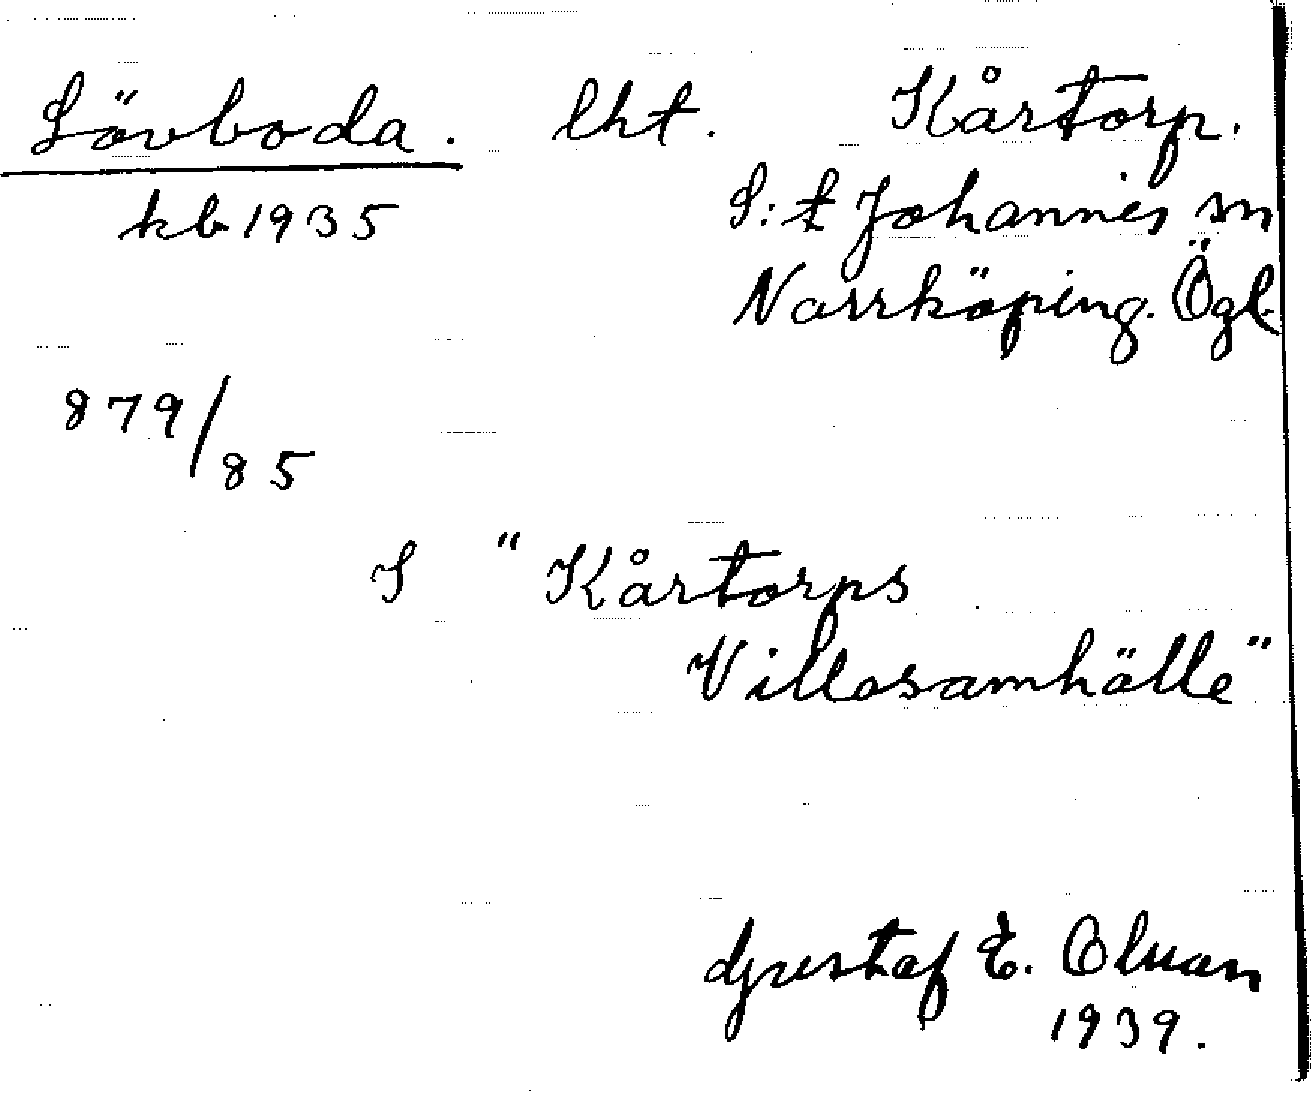 Lövboda. lht. Kårtorp.
kb 1935 S:t Johannes sn
Norrköping. Ögl.
879/85
I "Kårtorps
Villasamhälle"
Gustaf E. Olsson
1939.